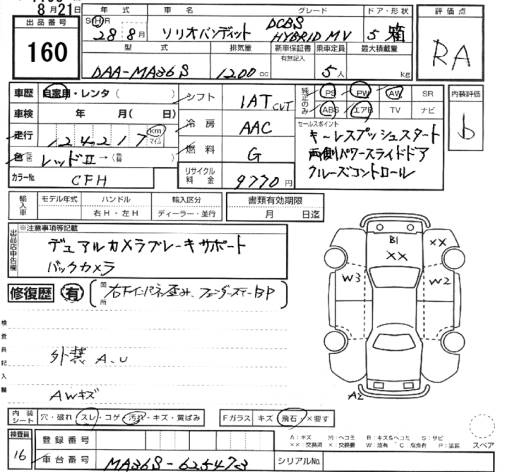 8月21日
出品番号
160
年式 車名 グレード ドア・形状
28年8月 ソリオバンディット DCBS HYBRID MV 5 箱
型式 排気量 新車保証書 有無記入 乗車定員 最大積載量
DAA-MA36S 1200cc 5人 kg
評価点
RA
車歴 自家用・レンタ( )
車検 年 月(日)
走行 124217 km マイル
色(元色) レッドII→(替色)
カラーNo. CFH
シフト 1AT CVT
冷房 AAC
燃料 G
リサイクル料金 9770円
PS PW AW SR
ABS エアB TV ナビ
セールスポイント
キーレスプッシュスタート
両側パワースライドドア
クルーズコントロール
内装評価
b
輸入車 モデル年式 ハンドル 輸入区分
右H・左H ディーラー・並行
書類有効期限
月 日迄
出品店申告欄
※注意事項等記載
デュアルカメラブレーキサポート
バックカメラ
修復歴 有 箇所 右下インパネ歪み、フェンダーステーBP
検査員記入欄
外装 A.U
AWキズ
B1
XX
XX
W3
W2
A2
内装シート 穴・破れ スレ・コゲ 汚れ・キズ・黄ばみ
Fガラス キズ 飛石・×要す
スペア
検査員
16
登録番号
車台番号 MA36S-625473
シリアルNo.